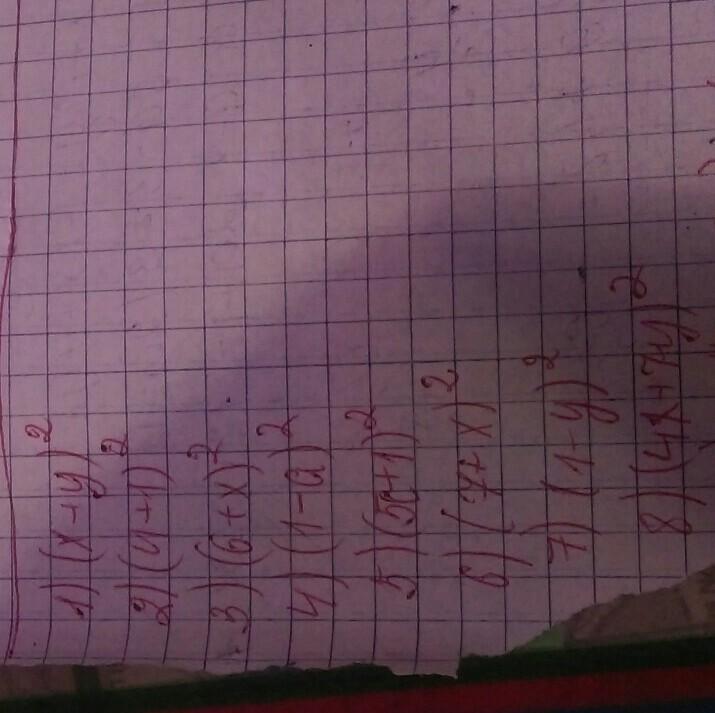 1) (x+y)²
2) (y+1)²
3) (6+x)²
4) (1-a)²
5) (5c+1)²
6) (7+x)²
7) (1-y)²
8) (4x+7y)²